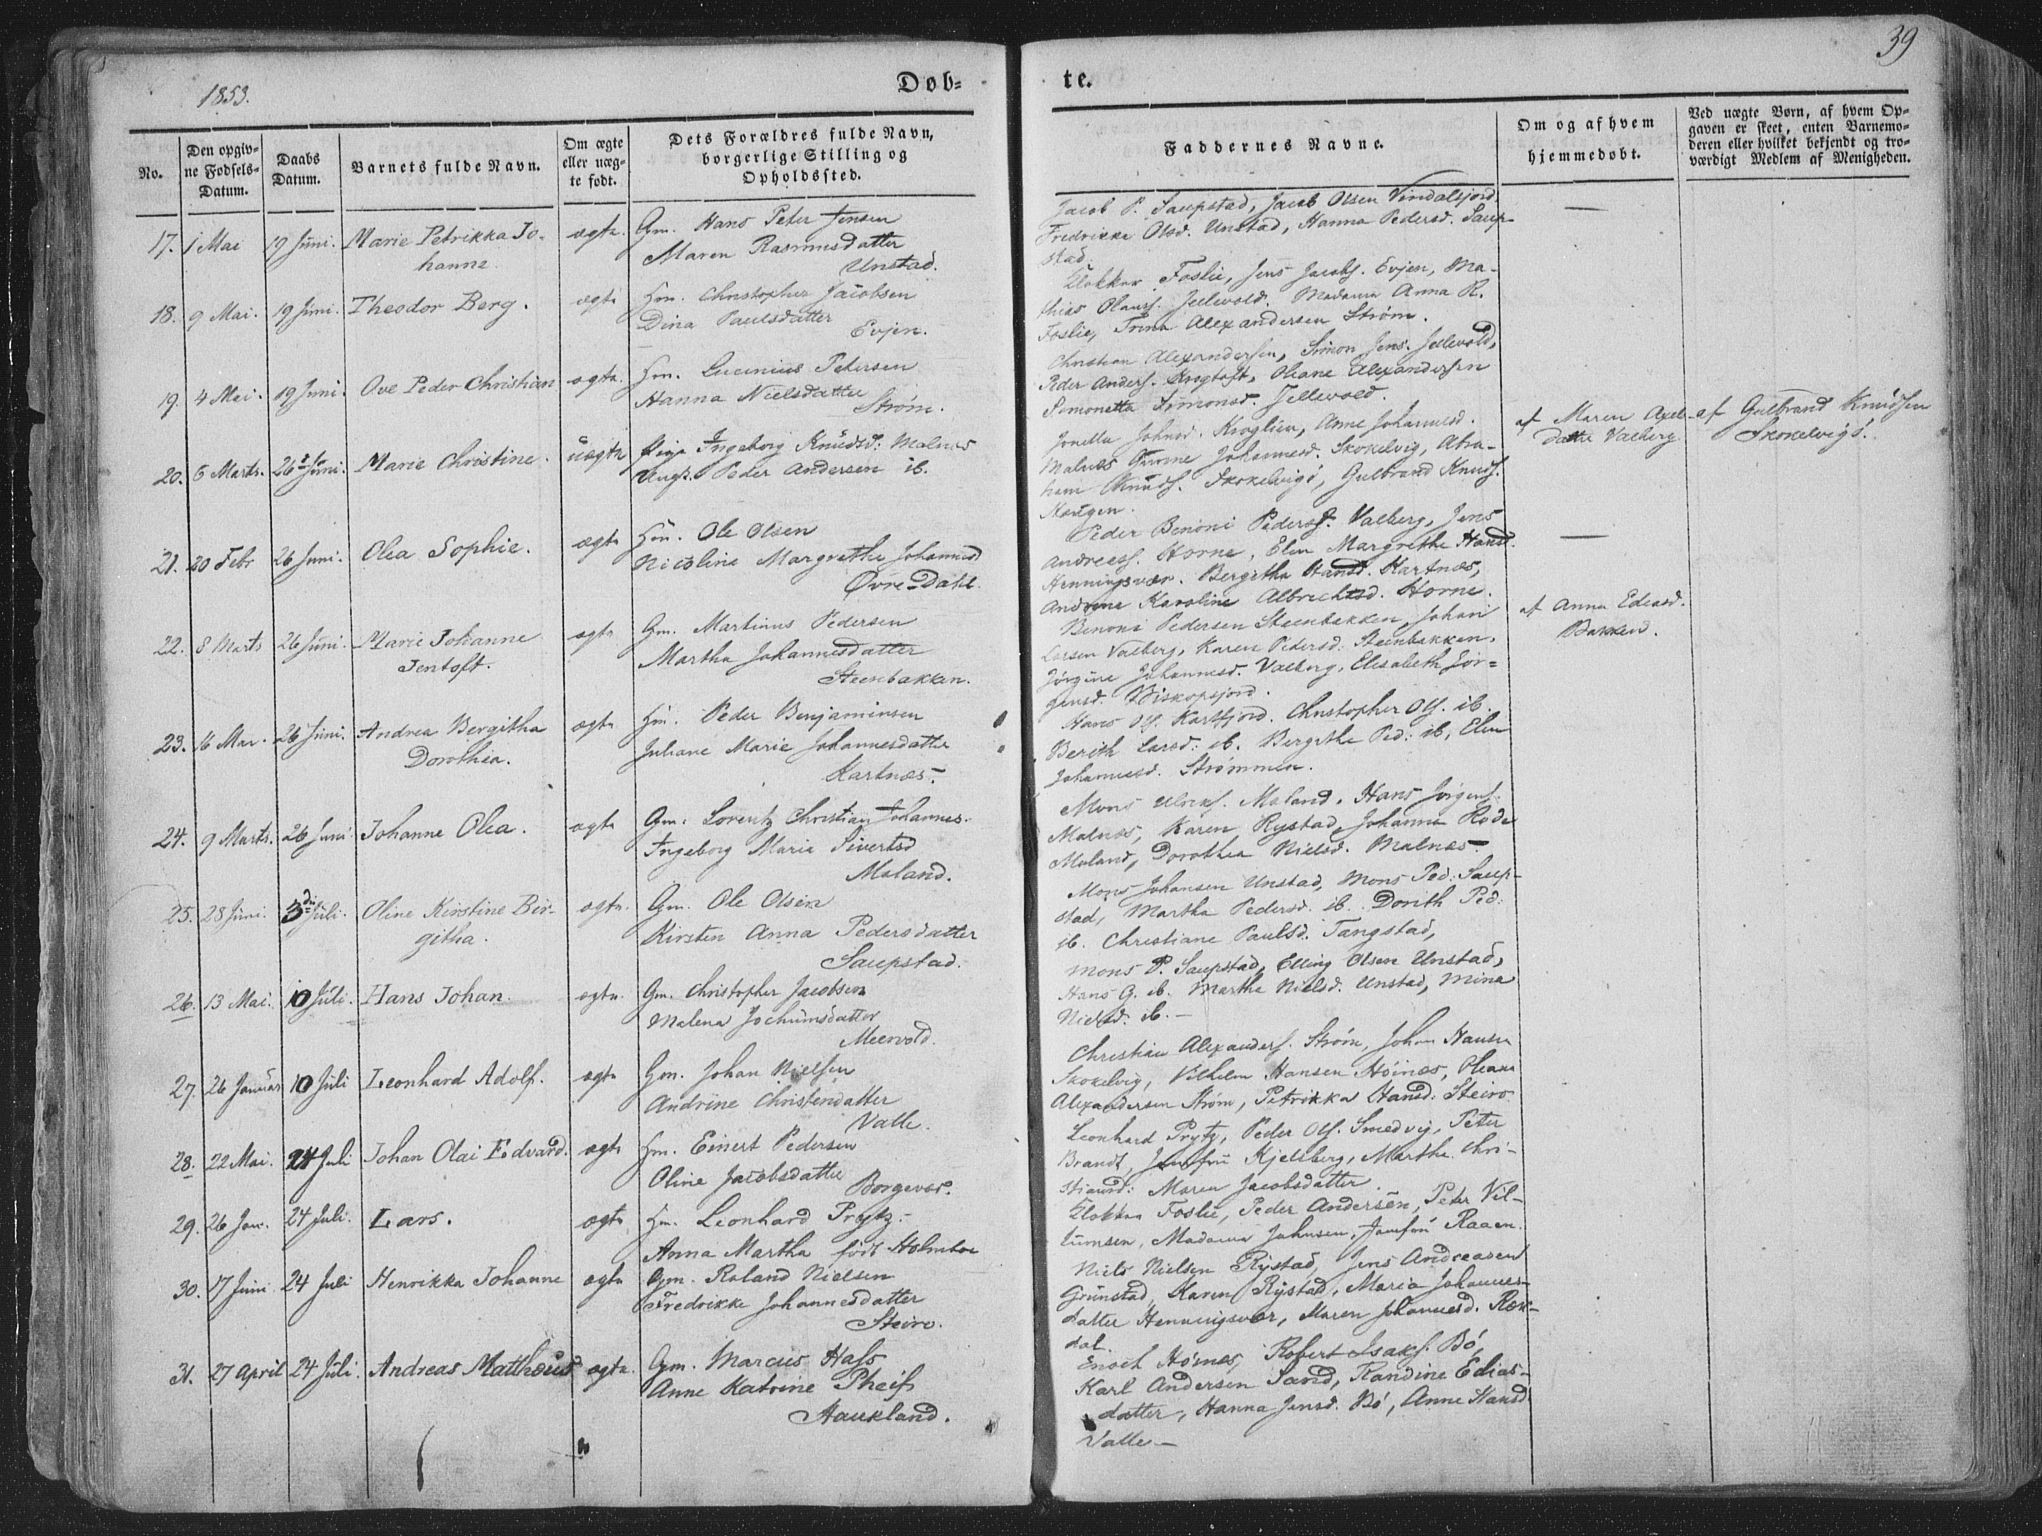 1853.
Døb=
te.
39
No.
Den opgiv=
ne Fødsels=
Datum.
Daabs
Datum.
Barnets fulde Navn.
Om ægte
eller uæg=
te født.
Dets Forældres fulde Navn,
borgerlige Stilling og
Opholdssted.
Faddernes Navne.
Om og af hvem
hjemmedøbt.
Ved uægte Børn, af hvem Op=
gaven er skeet, enten Barnemo=
deren eller hvilket bekjendt og tro=
værdigt Medlem af Menigheden.
17. 1 Mai 19 Juni. Marie Petrikka Jo-
hanne.
ægte. Gm. Hans Peter Jensen
Maren Rasmusdatter
Unstad.
Jacob P. Saupstad, Jacob Olsen Vindalsjord.
Fredrikke Olsd. Unstad, Hanna Pedersd. Saup-
stad.
—
18. 9 Mai. 19 Juni. Theodor Berg.
ægte Hm. Christopher Jacobsen
Dina Paulsdatter
Evjen.
Klokker Foslie, Jens Jacobs. Evjen, Ma-
thias Olaus. Jellevold. Madame Anna R.
Foslie, Trina Alexandersen Strøm.
19. 4 Mai. 19 Juni. Ove Peder Christian
ægte. Hm. Lucinius Petersen
Hanna Nielsdatter
Strøm.
Christian Alexandersen, Simon Jens. Jellevold,
Peder Anders. Krogtoft, Oliane Alexandersen
Simonetta Simonsd. Jellevold.
20. 6 Marts. 26 Juni. Marie Christine.
uægte Pige Ingeborg Knudsd: Malnes
Ungk. Peder Andersen ib.
Jonetta Johnsd. Kroglien, Anne Johannesd.
Malnæs Johannesd. Skokelvig, Abra-
ham Knuds. Skokelvigs, Gulbrand Knuds.
Haugen.
af Maren Axel-
datter Valberg.
af Gulbrand Knudsen
Skokelvigs.
21. 20 Febr 26 Juni. Olea Sophie.
ægte Hm. Ole Olsen
Nicoline Margrethe Johannesd
Øvre Dahl.
Peder Benoni Peders. Valberg, Jens
Andreas. Horne, Elen Margrethe Hansd.
Henningsvær. Bergitha Hansd. Kartnæs,
Andrine Karoline Albrechtsd. Horne.
—
22. 8 Marts 26 Juni. Marie Johanne
Jentoft.
ægte Gm. Martinus Pedersen
Martha Johannesdatter
Steenbakken.
Benoni Pedersen Steenbakken, Johan
Larsen Valberg, Karen Pedersd. Steenbakken.
Jørgine Johannesd. Valberg, Elisabeth Jør-
gensd. Biskopsjord.
af Anna Ediasd.
Bakken.
23. 16 Mar. 26 Juni. Andrea Bergitha
Dorothia.
ægte Hm. Peder Benjaminsen
Juliane Marie Johannesdatter
Kartnæs.
Hans Ols. Kartfjord. Christopher Ols. ib.
Berith Larsd: ib. Bergithe Ped: ib. Elen
Johannesd. Strømmen.
24. 9 Marts. 26 Juni Johanne Olea.
ægte Gm. Lorentz Christian Johannes.
Ingeborg Maria Sivertsd
Moland.
Mons Ulriks. Moland. Hans Jørgens.
Malnæs, Karen Rystad, Johanna Rode
Moland, Dorothea Nielsd. Malnæs
25. 28 Juni. 3die Juli. Oline Kirstine Bir-
githa.
ægte. Gm. Ole Olsen
Kirsten Anna Pedersdatter
Saupstad.
Mons Johansen Unstad, Mons Ped: Saup-
stad, Martha Pedersd. ib. Dorith Ped:
ib. Christiane Paulsd. Tangstad,
26. 13 Mai. 10 Juli. Hans Johan.
ægte. Gm. Christopher Jacobsen
Malena Jochumsdatter
Meervold.
Mons P. Saupstad, Elling Olsen Unstad,
Hans G. ib. Martha Nielsd. Unstad, Mina
Nielsd: ib. —
27. 26 Januar 10 Juli Leonhard Adolf.
ægte Gm. Johan Nielsen
Andrine Christendatter
Valle.
Christian Alexanders. Strøm, Johan Hansen
Skokelvig, Vilhelm Hansen Høinæs, Oliana
Alexandersen Strøm, Petrikka Hansd: Steiro
28. 22 Mai. 24 Juli Johan Olai Edvard.
ægte Hm. Einert Pedersen
Oline Jacobsdatter
Borgevær.
Leonhard Prytz, Peder Ols. Smedvig, Peter
Brandt, Jomfru Kjelsberg, Marthe Chri-
stiansd: Maren Jacobsdatter.
29. 26 Jan. 24 Juli. Lars.
ægte Hm. Leonhard Prytz.
Anna Martha født Holmboe
Klokker Foslie, Peder Andersen, Peter Vil-
lumsen, Madame Johnsen, Jomfru Raaen.
30. 17 Juni 24 Juli Henrikka Johanne
ægte Gm. Roland Nielsen
Fredrikke Johannesdatter
Steiro.
Niels Nielsen Rystad, Jens Andreasen
Grunstad, Karen Rystad, Maria Johannes-
datter Henningsvær, Maren Johannesd. Røk-
dal.
31. 27 April 24 Juli. Andreas Matthæus
ægte. Gm. Marcus Hass
Anne Katrine Pheiff
Haukland.
Enoch Høines, Robert Isaks. Bø,
Karl Andersen Sand, Randine Edias-
datter, Hanna Jensd. Bø, Anne Hansd
Valle —